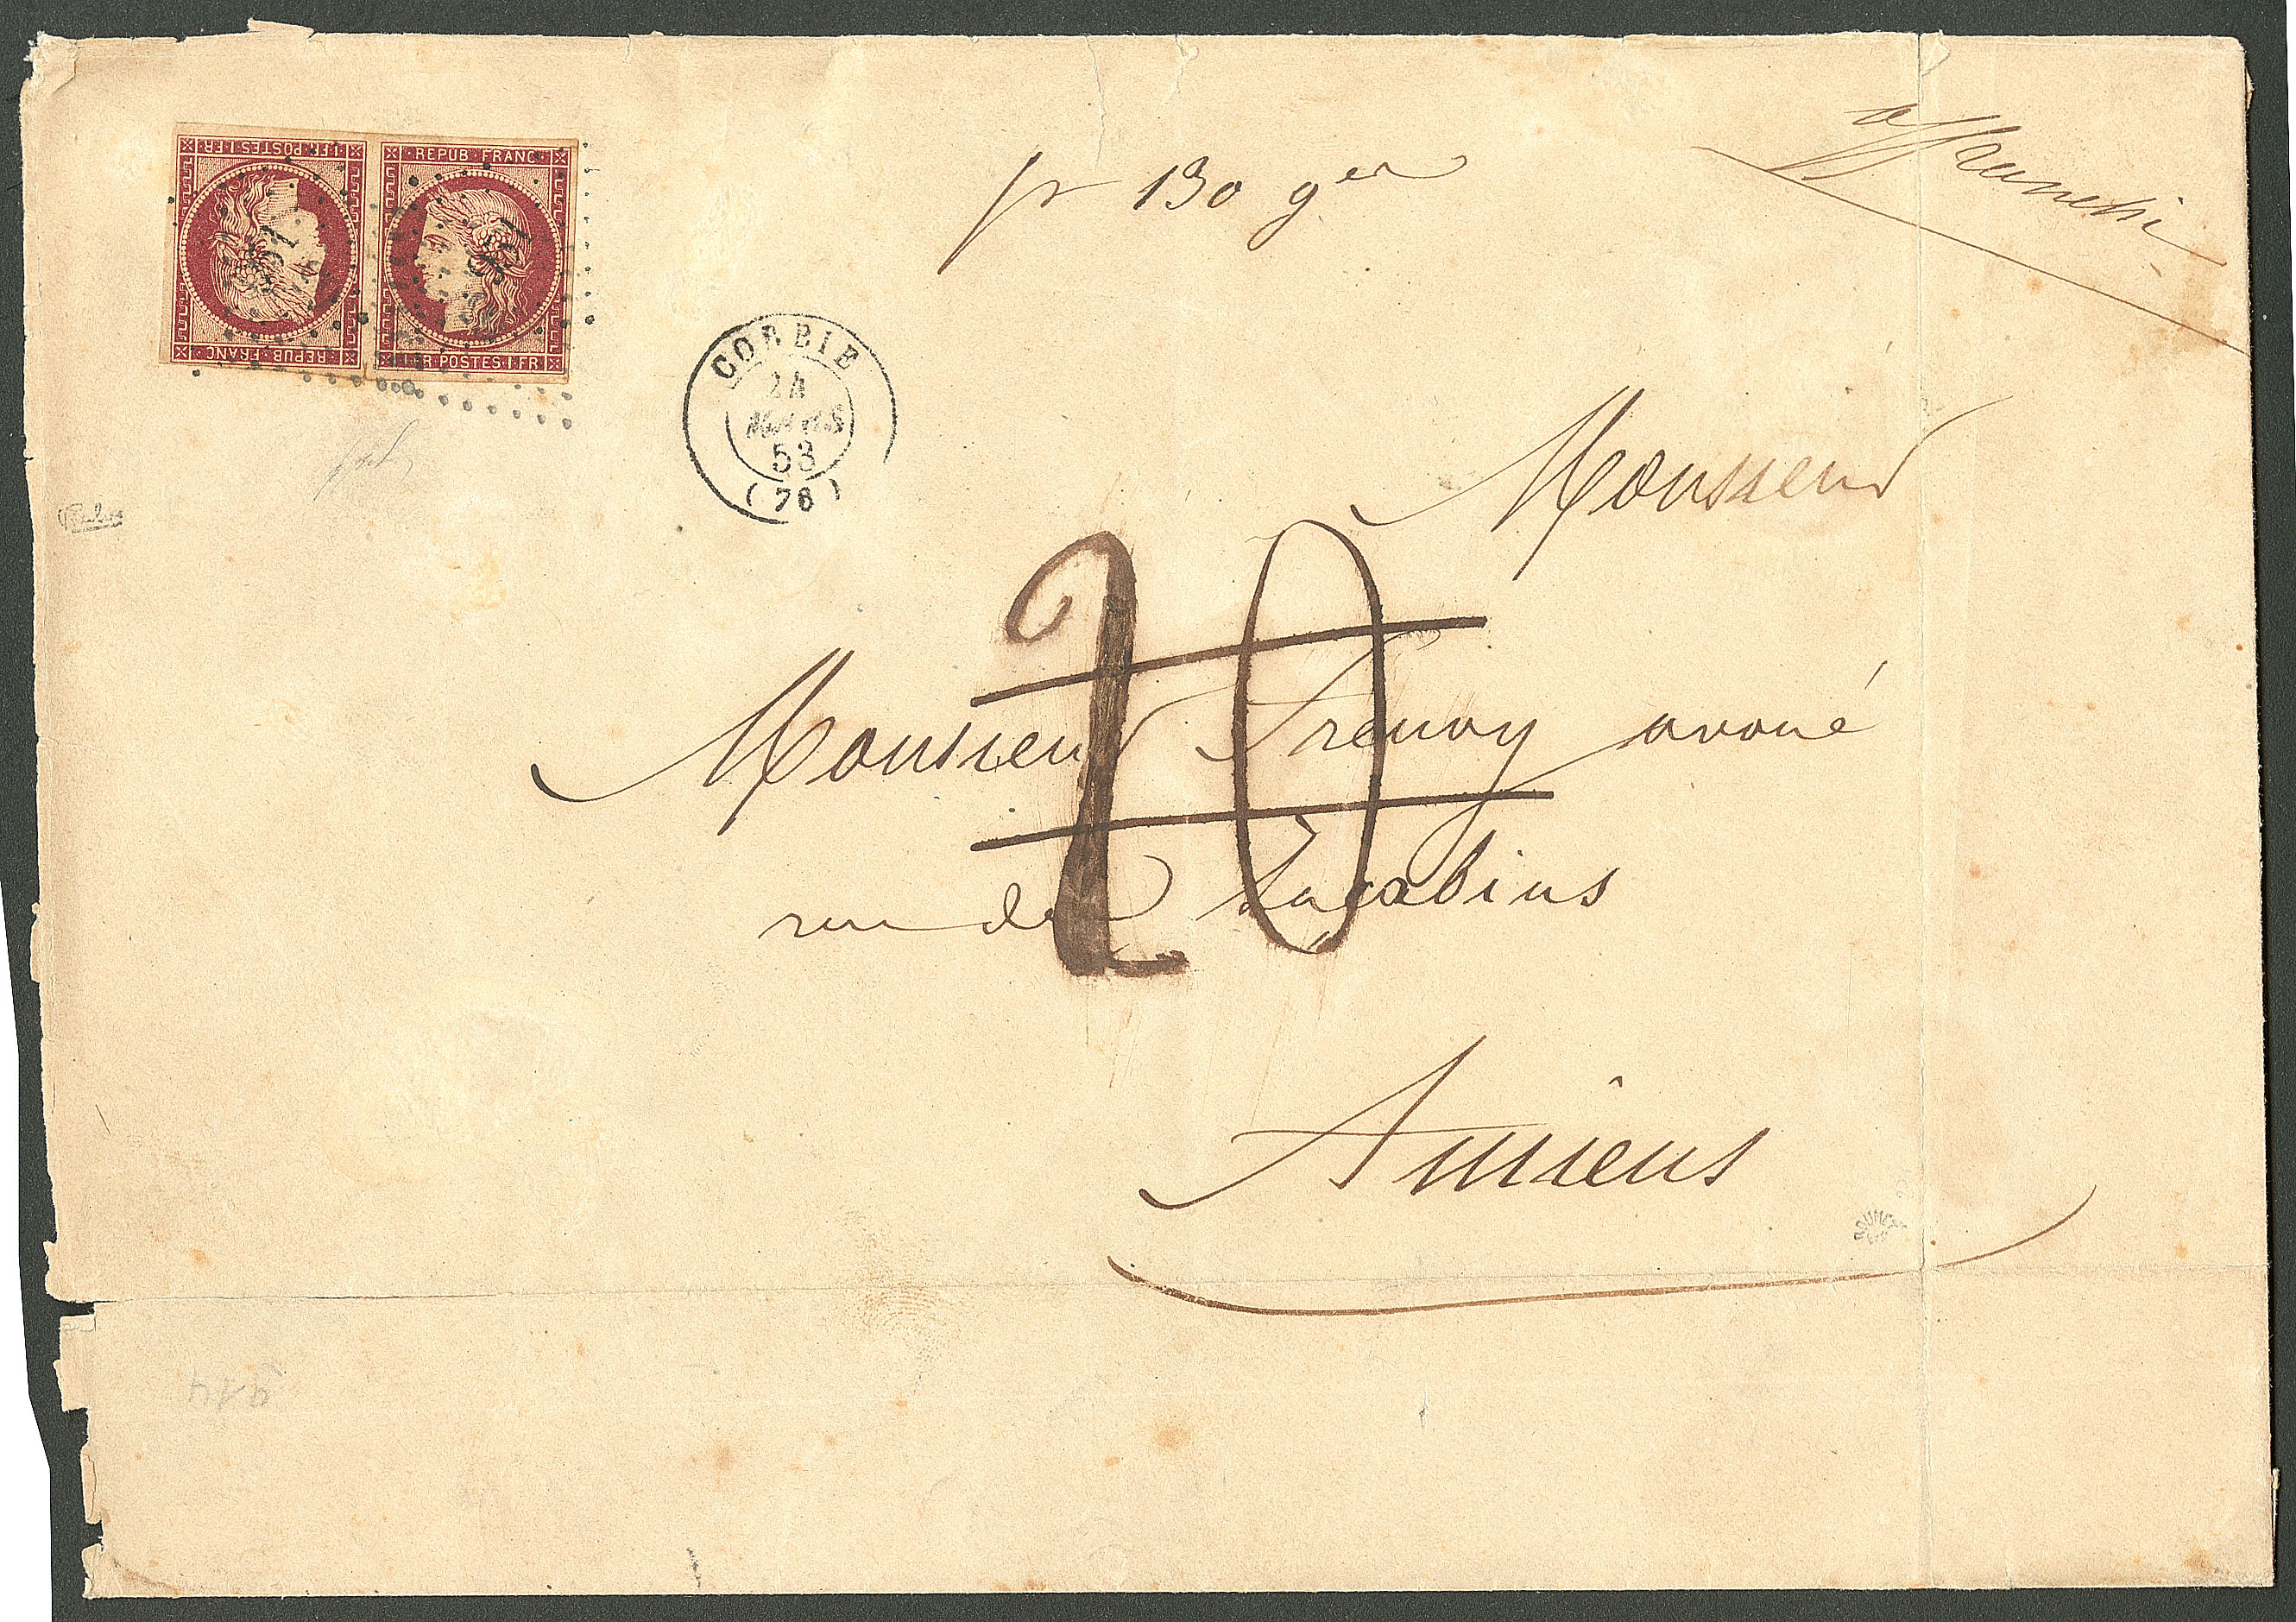 I·FR·POSTES·I·FR
REPUB·FRANC
REPUB·FRANC
I·FR·POSTES·I·FR
951
951
pr 130 ger
affranchi
CORBIE
24
MARS
53
(76)
Monsieur
20
Monsieur Treuvy avoué
rue des Jacobins
Amiens